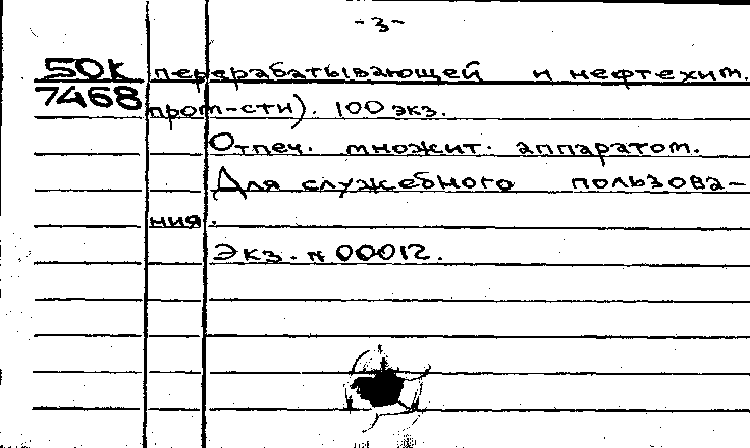 -3-
50К перерабатывающей и нефтехим.
7468 пром-сти). 100 экз.
Отпеч. множит. аппаратом.
Для служебного пользова-
ния.
Экз. № 00012.